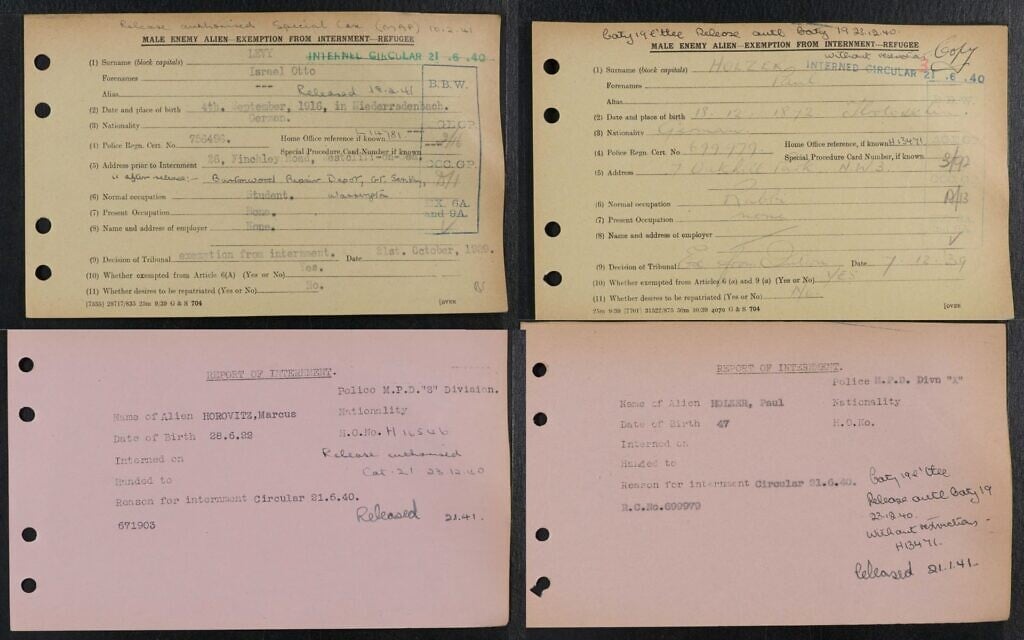 Release authorised Special Case (MAP) 10.2.41
MALE ENEMY ALIEN—EXEMPTION FROM INTERNMENT—REFUGEE
(1) Surname (block capitals) LEVY
INTERNED CIRCULAR 21.6.40
Forenames Israel Otto
B.B.W.
Alias -- Released 18.2.41
(2) Date and place of birth 4th. September, 1916, in Niederradenbach.
(3) Nationality German.
(4) Police Regn. Cert. No. 756496. Home Office reference if known L 14781
Special Procedure Card Number, if known
(5) Address prior to Internment 26, Finchley Road, Westcliff-on-Sea.
" after release:- Burtonwood Repair Depot, Gt. Sankey,
Warrington
(6) Normal occupation Student.
EX. 6A
(7) Present Occupation None.
and 9A.
(8) Name and address of employer None.
(9) Decision of Tribunal exemption from internment. Date 21st. October, 1939.
(10) Whether exempted from Article 6(A) (Yes or No) Yes.
(11) Whether desires to be repatriated (Yes or No) No.
(7535) 28717/835 25m 9/39 G & S 704 [OVER
Caty 19 C'ttee Release auth Caty 19 23.12.40.
MALE ENEMY ALIEN—EXEMPTION FROM INTERNMENT—REFUGEE
without restrictions
Copy
(1) Surname (block capitals) HOLZER
INTERNED CIRCULAR 21.6.40
Forenames Paul
Alias
(2) Date and place of birth 18. 12. 1892
(3) Nationality German
(4) Police Regn. Cert. No. 699979. Home Office reference if known H13471
Special Procedure Card Number, if known
(5) Address N.W.3.
(6) Normal occupation Rabbi
(7) Present Occupation none
(8) Name and address of employer
(9) Decision of Tribunal Date 7.12.39
(10) Whether exempted from Articles 6 (a) and 9 (a) (Yes or No) YES
(11) Whether desires to be repatriated (Yes or No) No
25m 9/39 (7701) 31522/875 50m 10/39 4070 G & S 704 [OVER
REPORT OF INTERNMENT.
Police M.P.D."S" Division.
Name of Alien HOROVITZ,Marcus
Nationality
Date of Birth 28.6.99
H.O.No. H 16546
Interned on
Release authorised
Handed to
Cat. 21 23.12.40
Reason for internment Circular 21.6.40.
Released 2.1.41.
671903
REPORT OF INTERNMENT.
Police M.P.D. Divn "X"
Name of Alien HOLZER, Paul
Nationality
Date of Birth 47
H.O.No.
Interned on
Handed to
Reason for internment Circular 21.6.40.
R.C.No.699979
Caty 19 C'ttee
Release auth Caty 19
23.12.40.
without restrictions -
H13471.
Released 21.1.41.